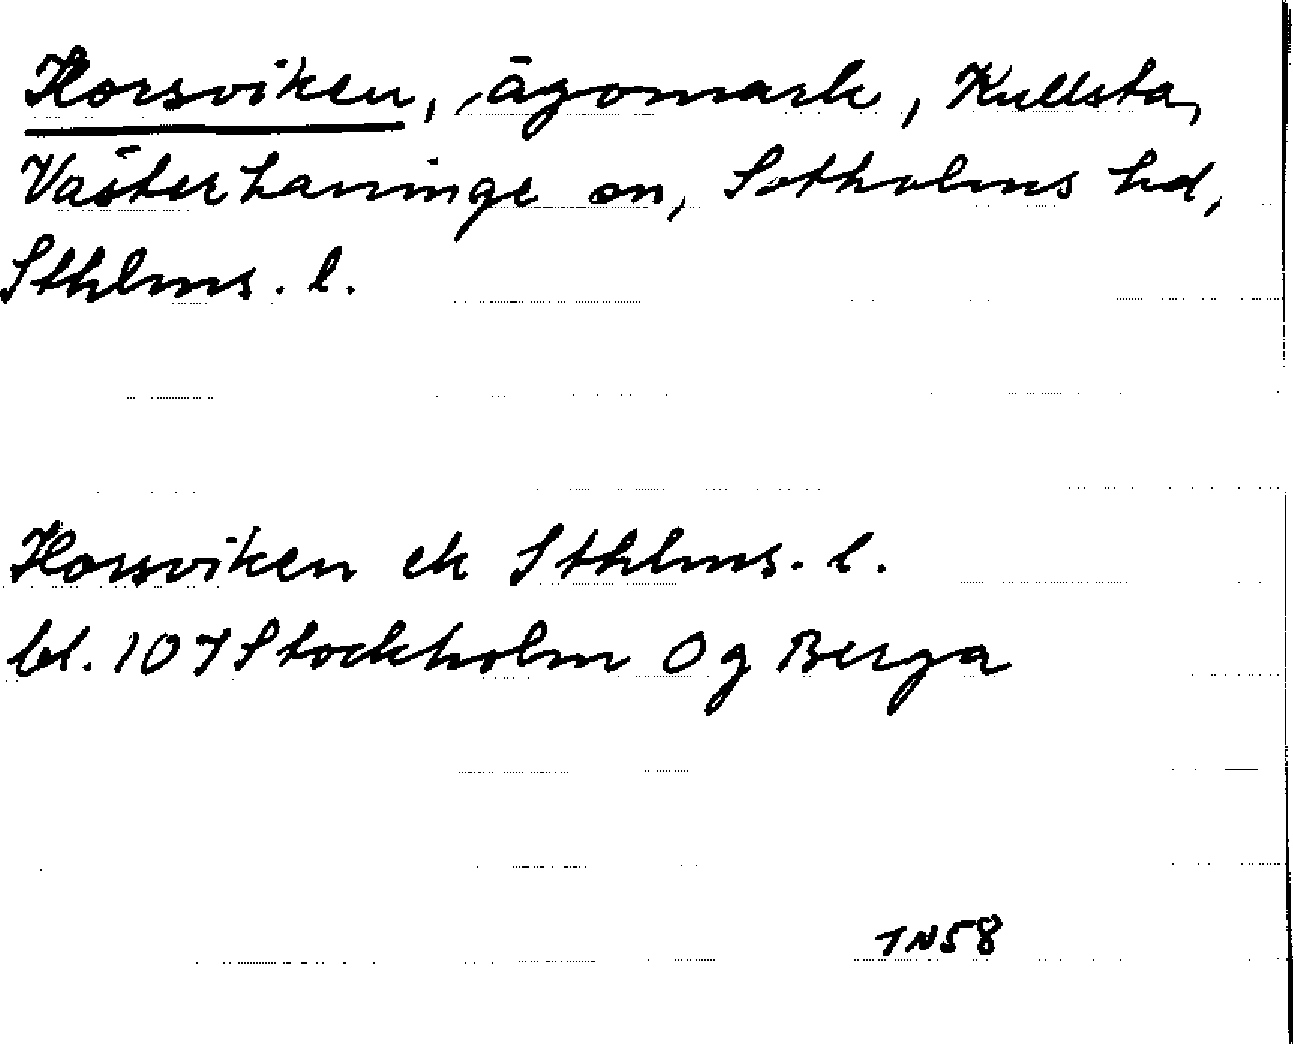 Horsviken, ägomark, Kullsta,
Västerhaninge sn, Sotholms hd,
Sthlms. l.
Horsviken ek Sthlms. l.
bl. 107 Stockholm Og Berga
TN58